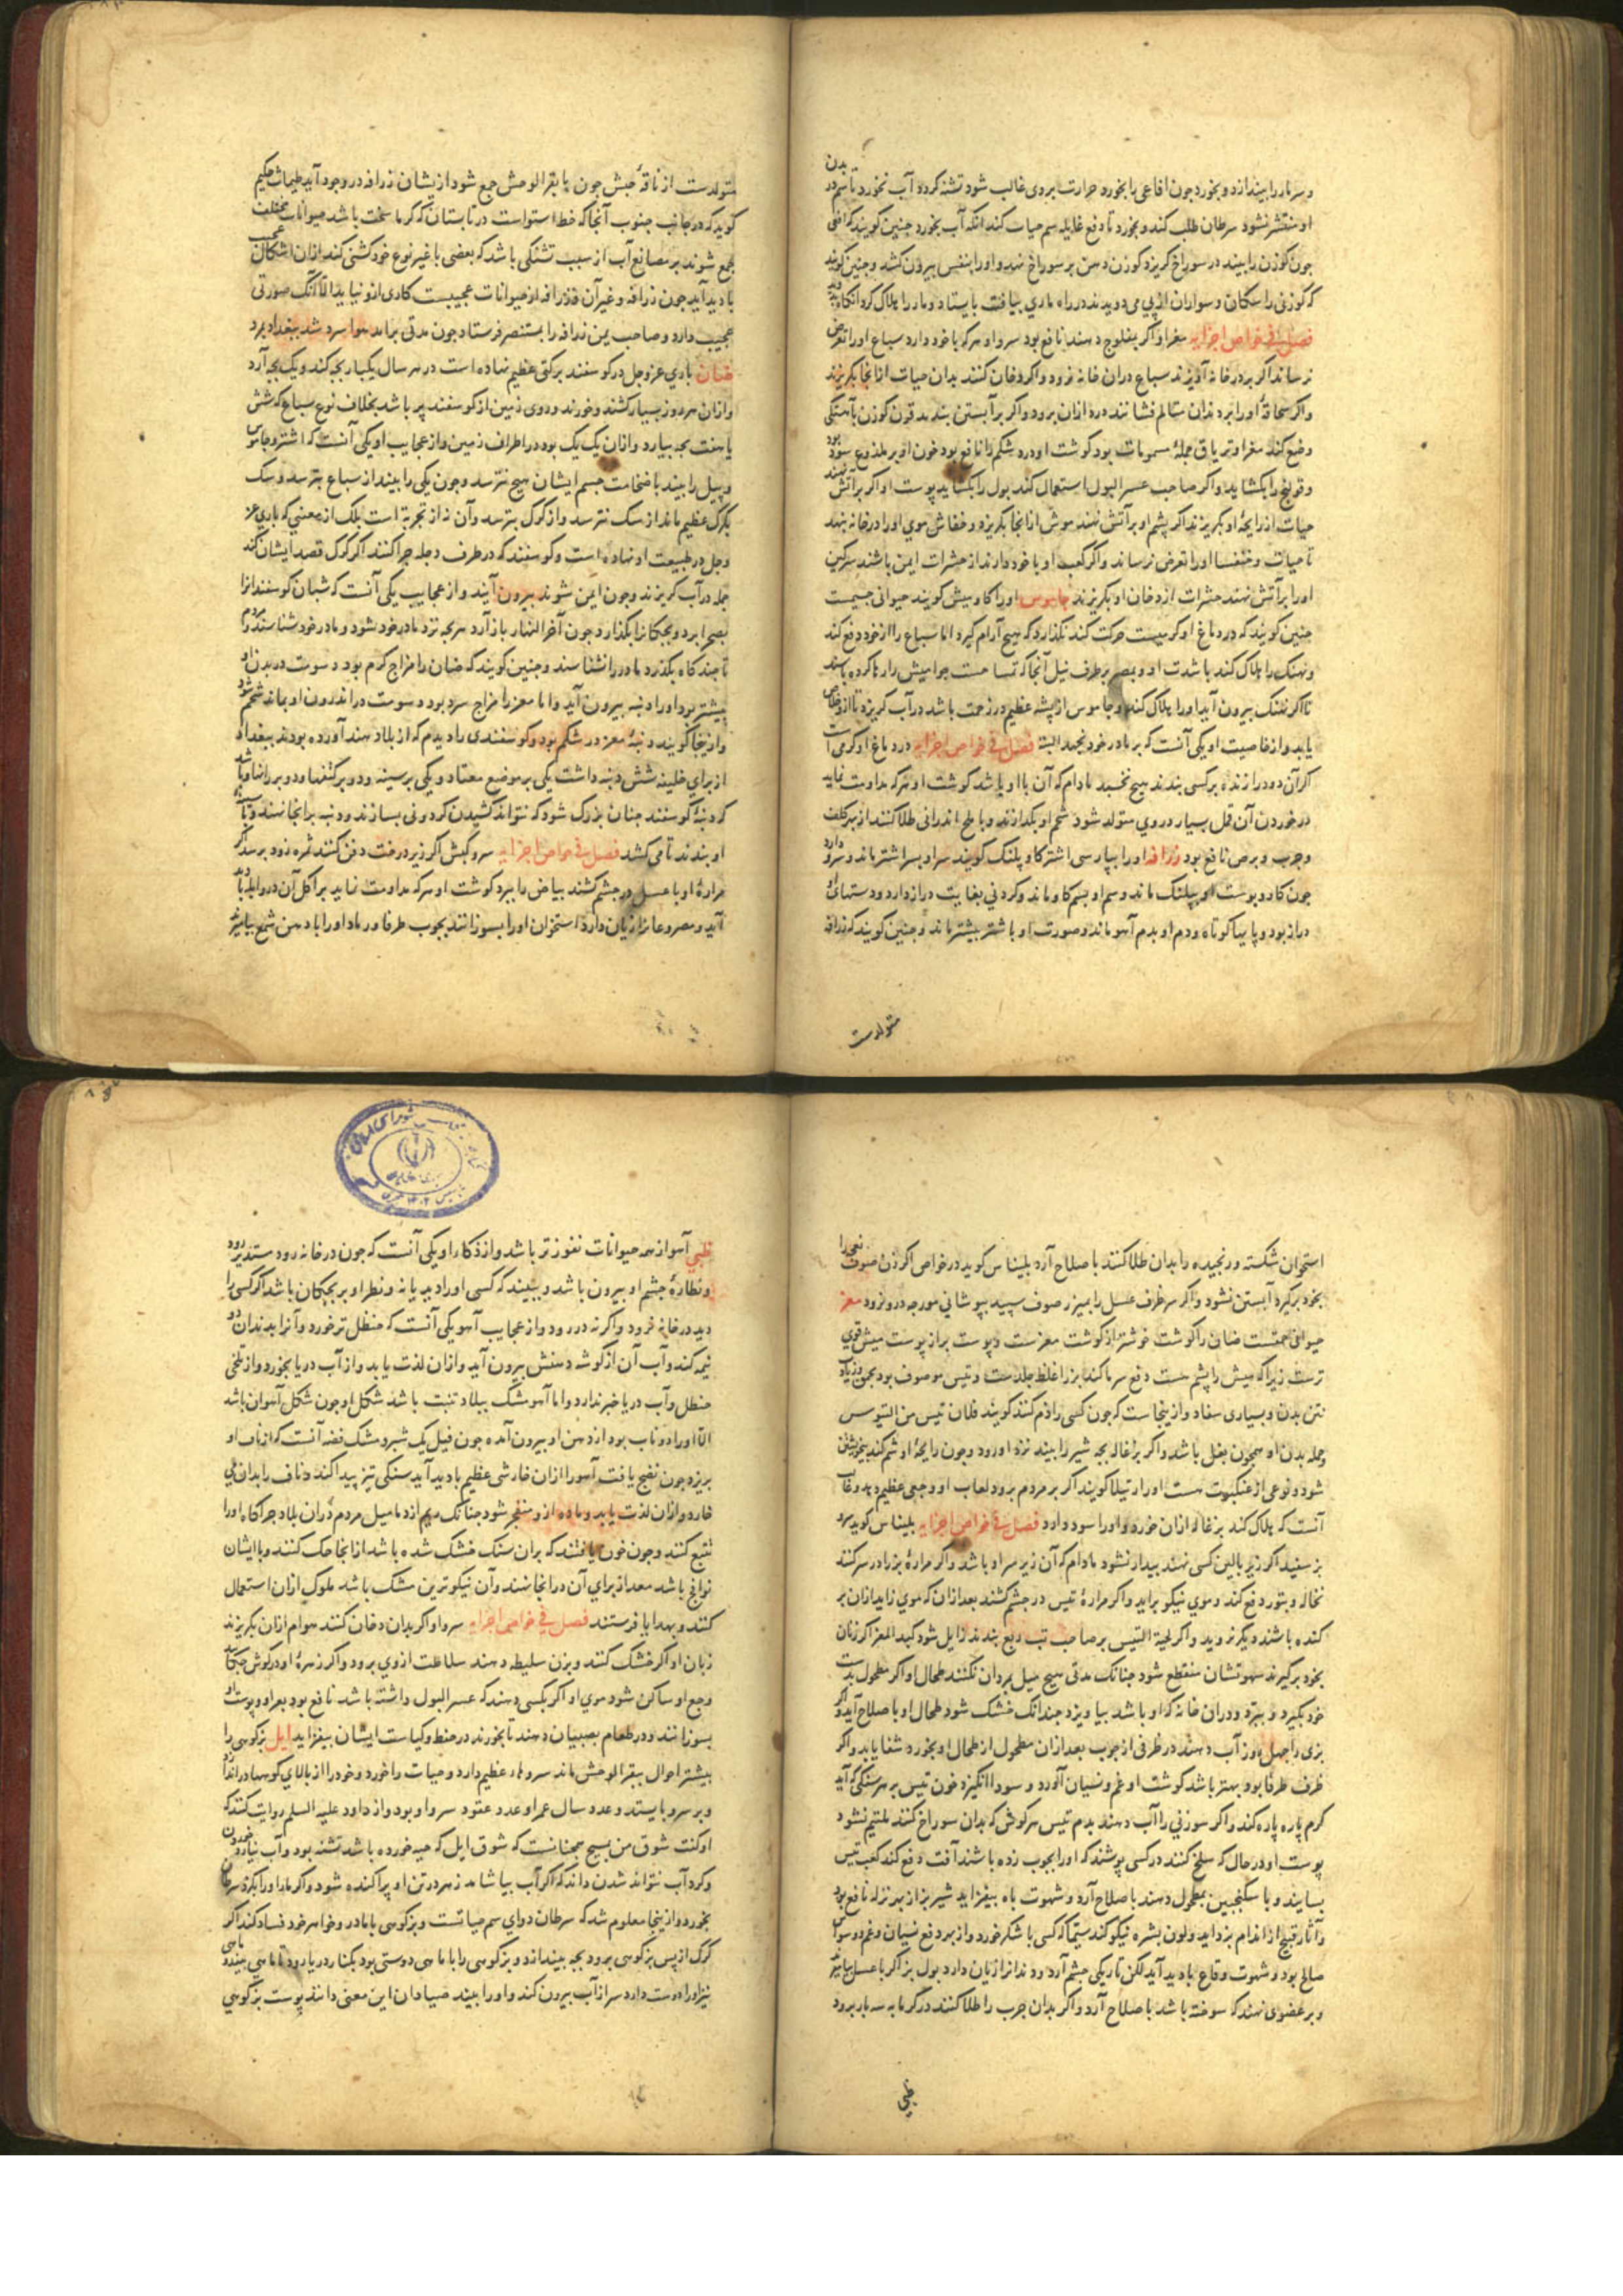 و سر مار را بیندازد و بخورد جون افاعی را بخورد حرارت بر وی غالب شود تشنه کردد آب نخورد تا سم در بدن
او منتشر نشود سرطان طلب کند و بخورد تا دفع غایله سم حیات کند انکه آب بخورد جنین کویند که افعی
جون کوزن را بیند در سوراخ کریزد کوزن دهن بر سوراخ نهد و او را بنفس بیرون کشد و جنین کویند
که کوزنی را سکان و سواران از پی می دویدند در راه ماری بیافت بایستاد و مار را هلاک کرد انکاه
فصل فی خواص اجزایه مغز او اکر بمفلوج دهند نافع بود سرو او هر که با خود دارد سباع او را تعرض
نرساند اکر بر در خانه آویزند سباع دران خانه نرود و اکر دخان کنند بدان حیات از انجا بکریزند
و اکر سحاقهٔ او را بر دندان متالم فشانند درد ازان برود و اکر بر آبستن بندند قرون کوزن بآهستکی
وضع کند مغز او تریاق جملهٔ مسمومات بود کوشت او درد شکم را نافع بود خون او بر ملذوع سود بود
و قولنج را بکشاید و اکر صاحب عسر البول استعمال کند بول را بکشاید پوست او اکر بر آتش نهند
حیات از رایحهٔ او بکریزند اکر پشم او بر آتش نهند موش از انجا بکریزد و خفاش موی او را در خانه نهند
تا حیات و خنفسا او را تعرض نرساند و اکر کعب او با خود دارند از حشرات ایمن باشند سرکین
او را بر آتش نهند حشرات از دخان او بکریزند جاموس او را کاومیش کویند حیوانی جسیمست
جنین کویند که در دماغ او کرمیست حرکت کند نکذارد که هیچ آرام کیرد اما سباع را از خود دفع کند
و نهنک را هلاک کند باشدت او و بمصر بر طرف نیل آنجا که تمساحست جوامیش را رها کرده باشند
تا اکر نهنک بیرون آید او را هلاک کنند و جاموس از پشه عظیم در زحمت باشد در آب کریزد تا از و خلاص
یابد و از خاصیت او یکی آنست که بر مادر خود نجهد البته فصل فی خواص اجزایه در دماغ او کرمی است
اکر آن دود را زنده بر کسی بندند هیچ نخسبد مادام که آن با او باشد کوشت او هر که مداومت نماید
در خوردن آن قمل بسیار در وی متولد شود شحم او بکدازند و با ملح اندرانی طلا کنند از بهر کلف
و جرب و برص نافع بود زرافه او را بپارسی اشتر کاو پلنک کویند سر او بسر اشتر ماند و سرو دارد
جون کاو و پوست او بپلنک ماند و سم او بسم کاو ماند و کردنی بغایت دراز دارد و دستهای او
دراز بود و پایها کوتاه و دم او بدم آهو ماند و صورت او با شتر بیشتر ماند و جنین کویند که زرافه
متولدست
متولدست از ناقهٔ حبش جون با بقر الوحش جمع شود از یشان زرافه در وجود آید طیماث حکیم
کوید که در جانب جنوب آنجا که خط استواست در تابستان که کرما سخت باشد حیوانات مختلف
جمع شوند بر مصانع آب از سبب تشنکی باشد که بعضی با غیر نوع خود کشنی کند ازان اشکال عجیب
بادید آید جون زرافه و غیر آن فذرافه از حیوانات عجیبست کاری ازو نیاید الا آنک صورتی
عجیب دارد و صاحب یمن زرافه را بمستنصر فرستاد جون مدتی براند هوا سرد شد ببغداد بمرد
ضان باری عز وجل در کوسفند برکتی عظیم نهاده است در هر سال یکبار بجه کند و یک بجه آرد
و ازان هر روز بسیار کشند و خورند و روی زمین از کوسفند پر باشد بخلاف نوع سباع که شش
یا هفت بجه بیارد و ازان یک یک بود در اطراف زمین و از عجایب او یکی آنست که اشتر و جاموس
و پیل را بیند با ضخامت جسم ایشان هیچ نترسد و جون یکی را بیند از سباع بترسد و سک
بکرک عظیم ماند از سک نترسد و از کرک بترسد و آن نه از تجربة است بلک از معنیی که باری عز
وجل در طبیعت او نهاده است و کوسفند که در طرف دجله جرا کنند اکر کرک قصد ایشان کند
جمله در آب کریزند و جون ایمن شوند بیرون آیند و از عجایب یکی آنست که شبان کوسفند انرا
بصحرا برد و بجکانرا بکذارد جون آخر النهار باز آرد هر بجه نزد مادر خود شود و مادر خود شناسد و مردم
تا جند کاه بکذرد مادر را نشناسند و جنین کویند که ضان را مزاج کرم بود دسومت در بدن او
بیشتر بود او را دنبه بیرون آید و اما معز را مزاج سرد بود دسومت در اندرون او بماند شحم شود
و ازینجا کویند دنبهٔ معز در شکم بود و کوسفندی را دیدم که از بلاد هند آورده بودند ببغداد
از برای خلیفه شش دنبه داشت یکی بر موضع معتاد و یکی بر سینه و دو بر کتفها و دو بر رانها و باشد
که دنبهٔ کوسفند جنان بزرک شود که نتواند کشیدن کردونی بسازند و دنبه بر انجا نهند و با
او بندند تا می کشد فصل فی خواص اجزایه سرو کبش اکر زیر درخت دفن کنند ثمره زود برسد اکر
مرارهٔ او با عسل در جشم کشند بیاض را ببرد کوشت او هر که مداومت نماید بر اکل آن در و بلید
آید و مصروعانرا زیان دارد استخوان او را بسوزانند بجوب طرفا و رماد او را با دهن شمع بیامیزند
استخوان شکسته و رنجیده را بدان طلا کنند باصلاح آرد بلیناس کوید در خواص اکر زن صوف نعجه را
بخود برکیرد آبستن نشود و اکر سر ظرف عسل را بمیزر صوف سپید بپوشانی مورجه درو نرود معز
حیوانی احمقست ضان را کوشت خوشتر از کوشت معزست و پوست بز از پوست میش قوی
ترست زیرا که میش را پشم هست دفع سرما کند بز را غلظ جلدست و تیس موصوف بود بحمق و زیاد
نتن بدن و بسیاری سفاد و ازینجاست که جون کسی را ذم کنند کویند فلان تیس من التیوس
و جمله بدن او همجون بغل باشد و اکر بزغاله بجه شیر را بیند نزد او رود و جون رایحهٔ او شم کند بیخویشتن
شود و نوعی از عنکبوت هست او را رتیلا کویند اکر بر مردم برود لعاب او وجعی عظیم دهد و غالب
آنست که هلاک کند بزغاله ازان خورد و او را سود دارد فصل فی خواص اجزایه بلیناس کوید سرو
بز سپید اکر زیر بالین کسی نهند بیدار نشود مادام که آن زیر سر او باشد و اکر مرارهٔ بز را در سر کنند
نخاله و بثور دفع کند و موی نیکو بر آید و اکر مرارهٔ تیس در جشم کشند بعد ازان که موی زاید ازان بر
کنده باشند دیکر نروید و اکر لحیة التیس بر صاحب تب ربع بندند زایل شود کبد المعز اکر زنان
بخود برکیرند شهوتشان منقطع شود جنانک مدتی هیچ میل بمردان نکنند طحال او اکر مطحول بدست
خود بکیرد و ببرد و دران خانه که او باشد بیاویزد جندانک خشک شود طحال او باصلاح آید و اکر
بزی را جهل روز آب دهند در ظرفی از جوب بعد ازان مطحول از طحال او بخورد شفا یابد و اکر
ظرف طرفا بود بهتر باشد کوشت او غم و نسیان آورد و سودا انکیزد خون تیس بر هر سنکی که آید
کرم پاره پاره کند و اکر سوزنی را آب دهند بدم تیس هر کوش که بدان سوراخ کنند ملتیم نشود
پوست او در حال که سلخ کنند در کسی پوشند که او را بجوب زده باشند آفت دفع کند کعب تیس
بسایند و با سکنجبین بمطحول دهند باصلاح آرد و شهوت باه بیفزاید شیر بز از بهر نزله نافع بود
و آثار قبیح از اندام بزداید و لون بشره نیکو کند سیما که کسی با شکر خورد و از بهر دفع نسیان و غم و سواس
صالح بود و شهوت وقاع بادید آید لکن تاریکی جشم آرد و دندانرا زیان دارد بول بز اکر با عسل بیامیزند
و بر عضوی نهند که سوخته باشد باصلاح آرد و اکر بدان جرب را طلا کنند در کرمابه سه بار برود
ظبی
ظبی آهو از همه حیوانات نفورتر باشد و از ذکاء او یکی آنست که جون در خانه رود مستدبر رود
و نظارهٔ جشم او بیرون باشد و ببیند که کسی او را دید یا نه و نظر او بر بجکان باشد اکر کسی را
دید در خانه نرود و اکر نه در رود و از عجایب آهو یکی آنست که حنظل تر خورد و آنرا بدندان دو
نیمه کند و آب آن از کوشه دهنش بیرون آید و ازان لذت یابد و از آب دریا بخورد و از تلخی
حنظل و آب دریا خبر ندارد و اما آهو مشک ببلاد تبت باشد شکل او جون شکل آهوان باشد
الا او را دو ناب بود از دهن او بیرون آمده جون فیل یک شبر و مشک فضله آنست که از ناف او
بریزد جون نضج یافت آهو را ازان خارشی عظیم بادید آید سنکی تیز پیدا کند و ناف را بدان می
خارد و ازان لذت یابد و ماده ازو منفجر شود جنانک ریم از دمامیل مردم دران بلاد جراکاه او را
تتبع کنند و جون خون یافتند که بران سنک خشک شده باشد از انجا حک کنند و با ایشان
نوافج باشد معد از برای آن در انجا نهند و آن نیکوترین مشک باشد ملوک ازان استعمال
کنند و بهدایا فرستند فصل فی خواص اجزایه سرو او اکر بدان دخان کنند هوام ازان بکریزند
زبان او اکر خشک کنند و بزن سلیطه دهند سلاطت از وی برود و اکر زهرهٔ او در کوش جکانند
وجع او ساکن شود موی او اکر بکسی دهند که عسر البول داشته باشد نافع بود بعر او و پوست او
بسوزانند و در طعام بصبیان دهند تا بخورند در حفظ و کیاست ایشان بیفزاید ایل بزکوهی را
بیشتر احوال ببقر الوحش ماند سروها عظیم دارد و حیات را خورد و خود را از بالای کوهها در اندازد
و بر سرو بایستد و عدد سال عمر او عدد عقود سرو او بود و از داود علیه السلام روایت کنند که
او کفت شوق من بسیح همجنانست که شوق ایل که حیه خورده باشد تشنه بود و آب نیارد خوردن
و کرد آب نتواند شدن داند که اکر آب بیاشامد زهر در تن او پراکنده شود و اکر مار او را بکزد سرطان
بخورد و ازینجا معلوم شد که سرطان دوای سم حیاتست و بزکوهی با مادر و خواهر خود فساد کند اکر
کرک از پس بزکوهی برود بجه بیندازد و بزکوهی را با ماهی دوستی بود بکنار دریا رود تا ماهی بیند و ماهی
نیز او را دوست دارد سر از آب بیرون کند و او را بیند صیادان این معنی دانند پوست بزکوهی